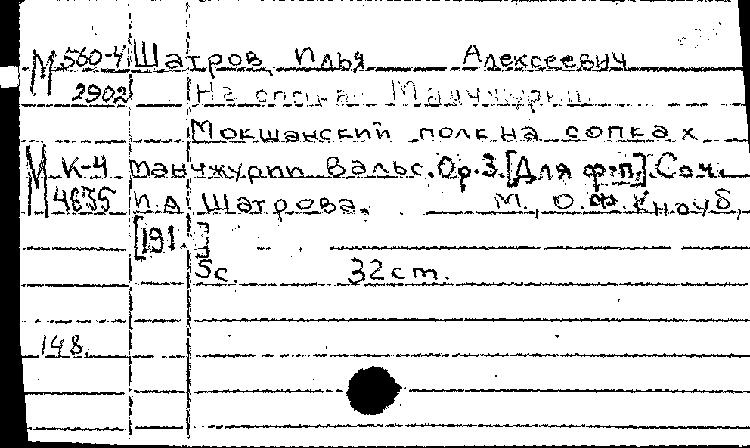 М 560-4 Шатров, Илья Алексеевич
2902 На сопках Манчжурии
Мокшанский полк на сопках
М К-4 Манчжурии. Вальс. Ор. 3. [Для ф.-п.] Соч.
4635 И.А. Шатрова. М., Ю.Ф. Кнауб,
[191. ]
5с. 32 ст.
148.